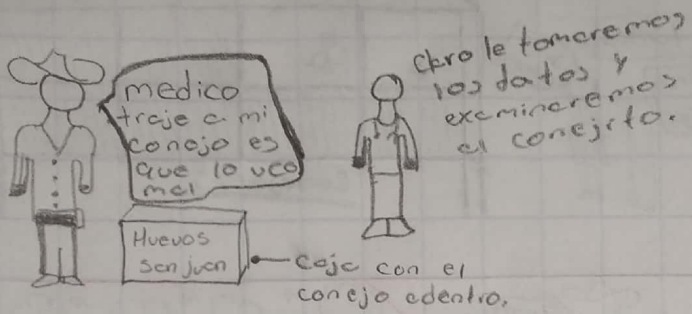 medico
traje a mi
conejo es
que lo veo
mal
claro le tomaremos
los datos y
examinaremos
al conejito.
Huevos
san juan
caja con el
conejo adentro.